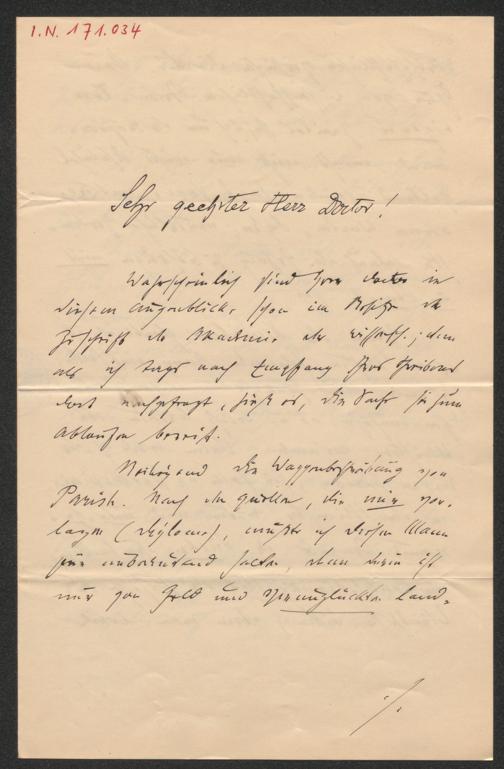 I.N. 171.034
Sehr geehrter Herr Doctor!
Wahrscheinlich sind Herr Doctor in
diesem Augenblicke schon im Besitze der
Zuschrift der Akademie der Wissensch.; denn
als ich tags nach Empfang Ihres Schreibens
dort nachgefragt, hieß es, die Sache sei zum
Ablaufen bereit.
Beiliegend die Wappenbeschreibung von
Parish. Nach den Quellen, die mir vor-
lagen (Diplome), mußte ich diesen Mann
für unbedeutend halten, denn darin ist
nur von Geld und verunglückten Land-
./.